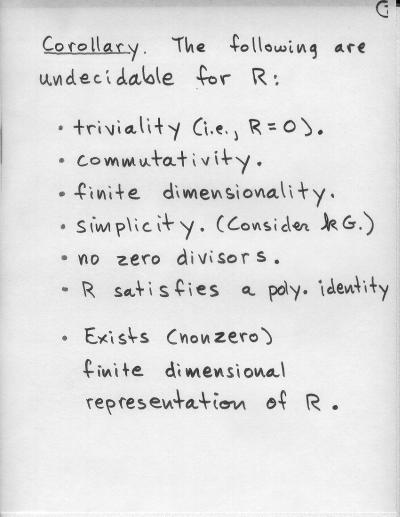 Corollary. The following are
undecidable for R:
• triviality (i.e., R = 0).
• commutativity.
• finite dimensionality.
• simplicity. (Consider kG.)
• no zero divisors.
• R satisfies a poly. identity
• Exists (nonzero)
finite dimensional
representation of R.